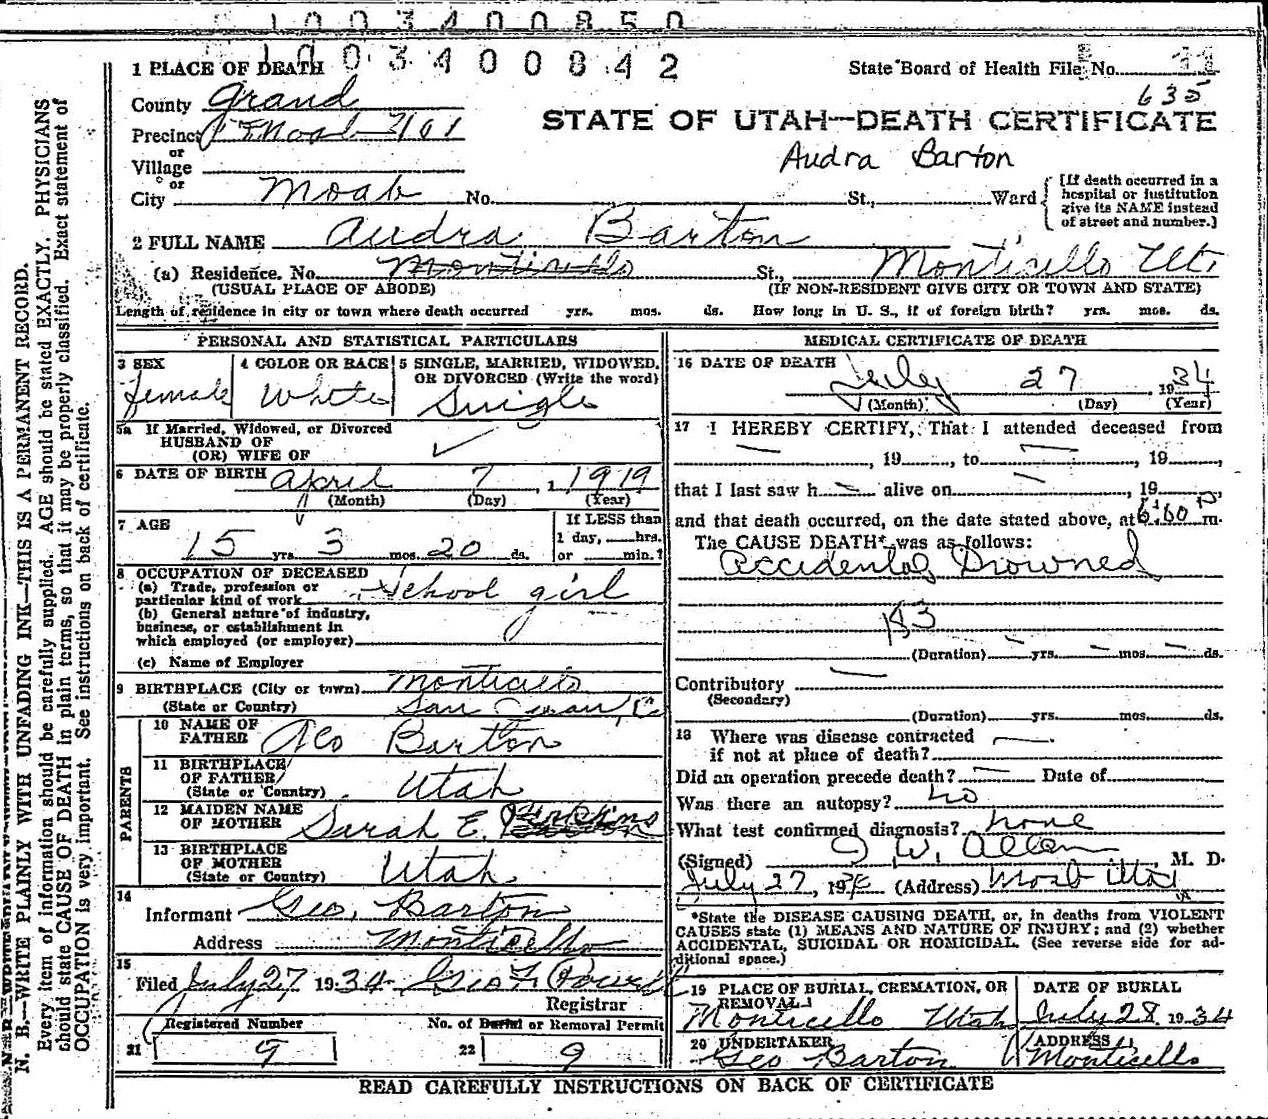 1003400850
1003400842
1 PLACE OF DEATH
State Board of Health File No. 11
635
County Grand
Precinct Moab
or
Village
or
City Moab No. St., Ward
STATE OF UTAH—DEATH CERTIFICATE
Audra Barton
[If death occurred in a
hospital or institution
give its NAME instead
of street and number.]
2 FULL NAME Audra Barton
(a) Residence. No. Monticello St., Monticello Ut.
(USUAL PLACE OF ABODE) (IF NON-RESIDENT GIVE CITY OR TOWN AND STATE)
Length of residence in city or town where death occurred yrs. mos. ds. How long in U. S., if of foreign birth? yrs. mos. ds.
PERSONAL AND STATISTICAL PARTICULARS
3 SEX
female
4 COLOR OR RACE
White
5 SINGLE, MARRIED, WIDOWED,
OR DIVORCED (Write the word)
Single
5a If Married, Widowed, or Divorced
HUSBAND OF
(OR) WIFE OF
6 DATE OF BIRTH April 7, 1919
(Month) (Day) (Year)
7 AGE
15 yrs. 3 mos. 20 ds.
If LESS than
1 day, hrs.
or min.?
8 OCCUPATION OF DECEASED
(a) Trade, profession or
particular kind of work School girl
(b) General nature of industry,
business, or establishment in
which employed (or employer)
(c) Name of Employer
9 BIRTHPLACE (City or town) Monticello
(State or Country) San Juan, Co
PARENTS
10 NAME OF
FATHER Geo Barton
11 BIRTHPLACE
OF FATHER
(State or Country) Utah
12 MAIDEN NAME
OF MOTHER Sarah E. Perkins
13 BIRTHPLACE
OF MOTHER
(State or Country) Utah
14
Informant Geo. Barton
Address Monticello
15
Filed July 27 1934 Geo
Registrar
Registered Number
21 9
No. of Burial or Removal Permit
22 9
MEDICAL CERTIFICATE OF DEATH
16 DATE OF DEATH July 27 1934
(Month) (Day) (Year)
17 I HEREBY CERTIFY, That I attended deceased from
, 19 , to , 19 ,
that I last saw h alive on , 19
and that death occurred, on the date stated above, at P m.
The CAUSE DEATH* was as follows:
Accidental Drowned
183
(Duration) yrs. mos. ds.
Contributory
(Secondary)
(Duration) yrs. mos. ds.
18 Where was disease contracted
if not at place of death?
Did an operation precede death? Date of
Was there an autopsy? no
What test confirmed diagnosis? none
(Signed) J W. Allen, M. D.
July 27, 1934 (Address) Moab Utah
*State the DISEASE CAUSING DEATH, or, in deaths from VIOLENT
CAUSES state (1) MEANS AND NATURE OF INJURY; and (2) whether
ACCIDENTAL, SUICIDAL OR HOMICIDAL. (See reverse side for ad-
ditional space.)
19 PLACE OF BURIAL, CREMATION, OR
REMOVAL
Monticello Utah
DATE OF BURIAL
July 28 1934
20 UNDERTAKER
Geo Barton
ADDRESS
Monticello
READ CAREFULLY INSTRUCTIONS ON BACK OF CERTIFICATE
N. B.—WRITE PLAINLY WITH UNFADING INK—THIS IS A PERMANENT RECORD.
Every item of information should be carefully supplied. AGE should be stated EXACTLY. PHYSICIANS
should state CAUSE OF DEATH in plain terms, so that it may be properly classified. Exact statement of
OCCUPATION is very important. See instructions on back of certificate.